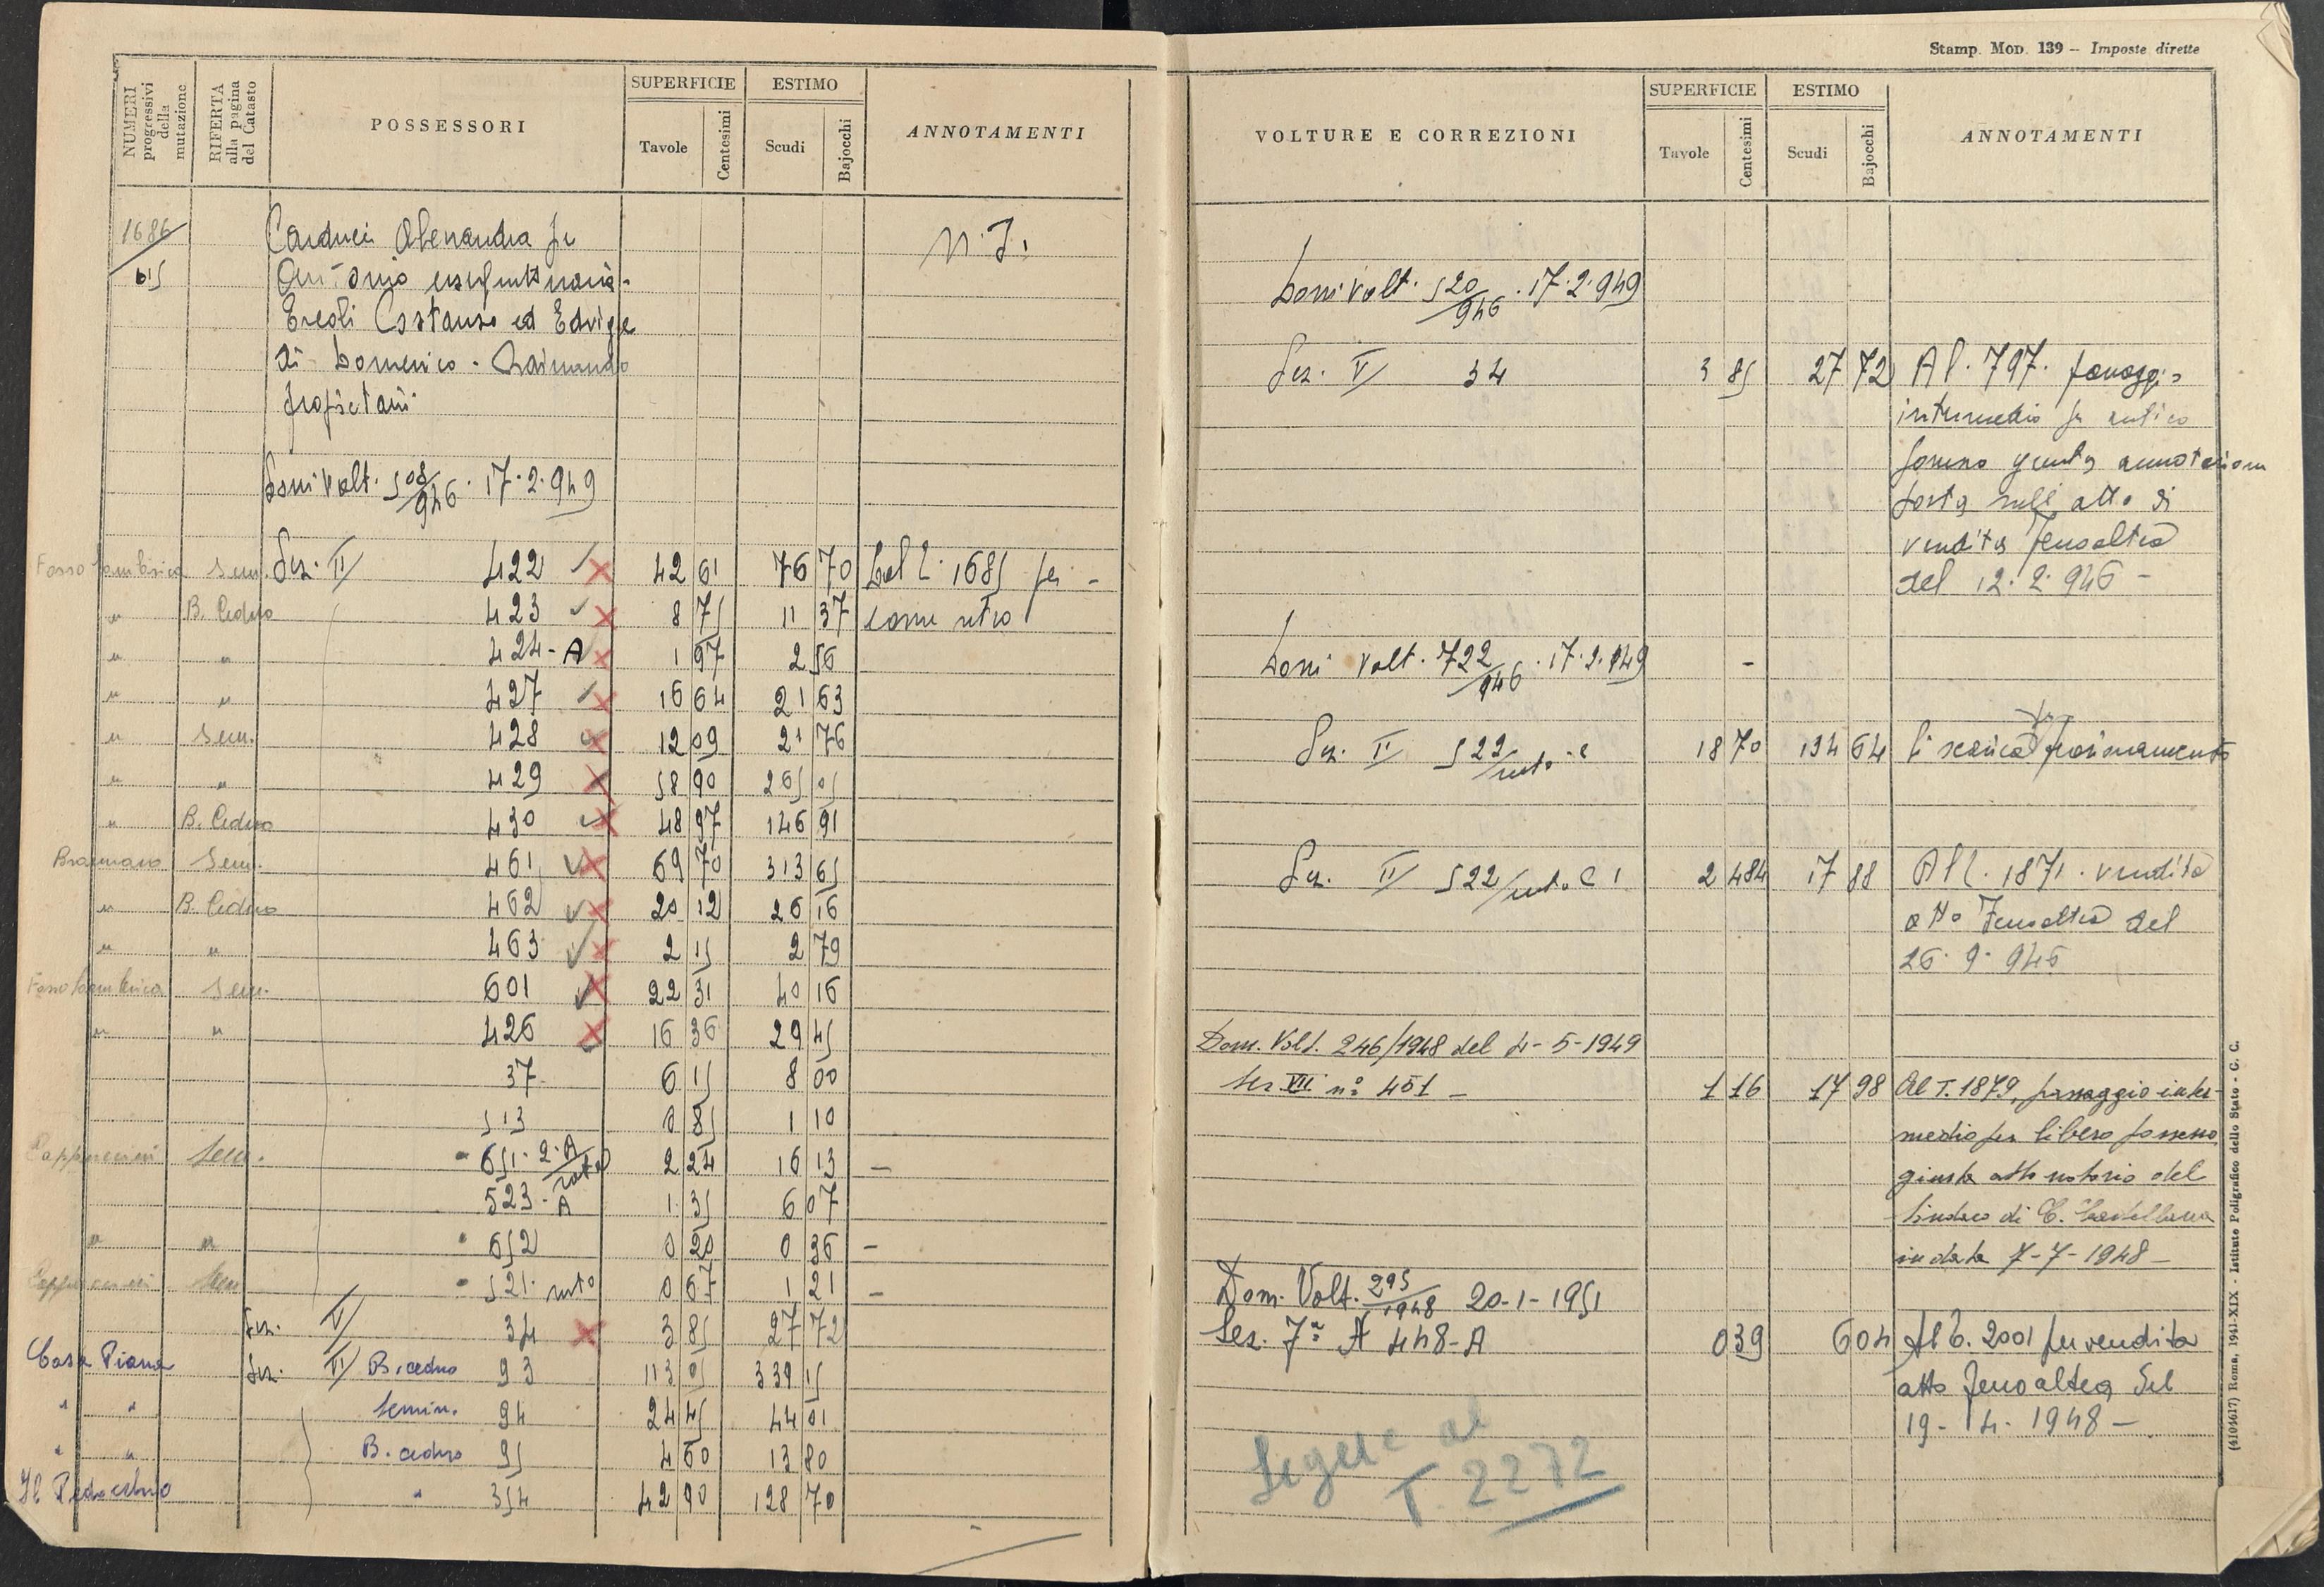 NUMERI progressivi della mutazione
RIFERTA alla pagina del Catasto
POSSESSORI
SUPERFICIE
Tavole
Centesimi
ESTIMO
Scudi
Bajocchi
ANNOTAMENTI
1686
615
Carducci Alessandra fu
Antonio usufruttuaria.
Ercoli Costanso ed Edvige
di Domenico. Raimondo
propietari.
N. I.
Dom. Volt. 508/946. 17.2.949
Fosso Sem. Sez. II 422 42 61 76 70 Dal l. 1685 per -
" B. Ceduo 423 8 75 11 37 come retro
" " 424-A 1 97 2 56
" " 427 16 64 21 63
" Sem. 428 12 09 21 76
" " 429 58 90 265 05
" B. Ceduo 430 48 97 146 91
Sem. 461 69 70 313 65
" B. Ceduo 462 20 12 26 16
" " 463 2 15 2 79
Fosso Sem. 601 22 31 40 16
" " 426 16 36 29 45
37 6 15 8 00
513 0 85 1 10
Cappuccini Sem. 651. 2. A rata 2 24 16 13 -
523-A 1 35 6 07
" " 652 0 20 0 36 -
Cappuccini Sem 521. 0 67 1 21 -
Sez. V 34 3 85 27 72
Casa Piana Sez. VI B. ceduo 93 113 05 339 15
" " Semin. 94 24 45 44 01
" " B. ceduo 95 4 60 13 80
Il " 354 42 90 128 70
Stamp. MOD. 139 – Imposte dirette
VOLTURE E CORREZIONI
SUPERFICIE
Tavole
Centesimi
ESTIMO
Scudi
Bajocchi
ANNOTAMENTI
Dom. Volt. 520/946. 17.2.949
Sez. V 34 3 85 27 72 Al. 797. passaggio
intermedio per antico
possesso giusta annotazione
posta sull'atto di
vendita Fenoaltea
del 12.2.946 -
Dom. Volt. 722/946. 17.2.949 -
Sez. II 522/ 18 70 134 64 Si scarica
Sez. II 522/ 2 484 17 88 Al l. 1871. vendita
atto Fenoaltea del
26. 9. 946
Dom. Volt. 246/1948 del 4-5-1949
Sez. VII nº 451 - 1 16 17 98 Al T. 1879, passaggio inter-
medio per libero possesso
giusta atto notorio del
Sindaco di C. Castellana
in data 7-7-1948 -
Dom. Volt. 295/1948 20-1-1951
Sez. 7ª 448-A 0 39 6 04 Al T. 2001 per vendita
atto Fenoaltea del
19-4-1948 -
Segue al
T. 2272
(4104617) Roma, 1941-XIX - Istituto Poligrafico dello Stato - C. C.